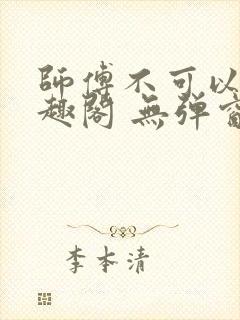 師傅不可以
趣閣 無彈窗
李本清